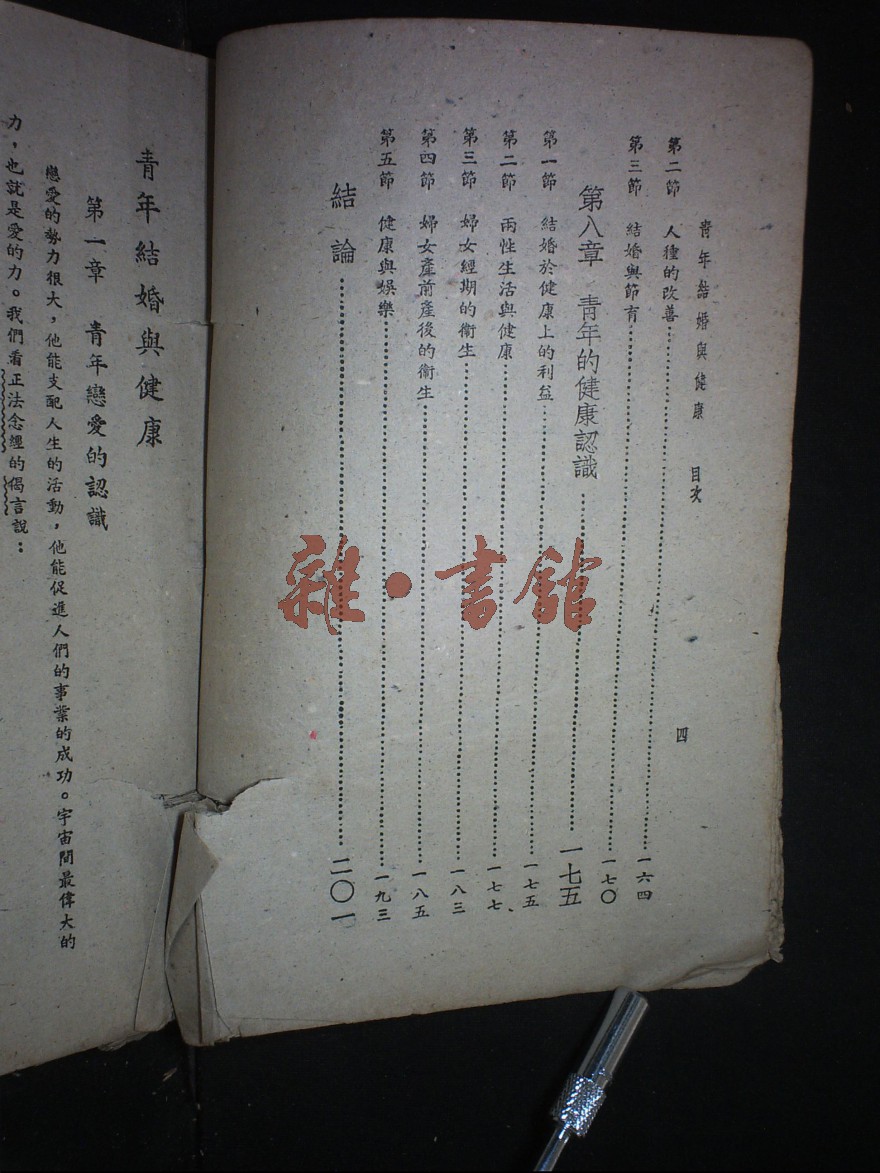 青年結婚與健康 目次 四
第二節 人種的改善……一六四
第三節 結婚與節育……一七〇
第八章 青年的健康認識……一七五
第一節 結婚於健康上的利益……一七五
第二節 兩性生活與健康……一七七
第三節 婦女經期的衛生……一八三
第四節 婦女產前產後的衛生……一八五
第五節 健康與娛樂……一九三
結論……二〇一
青年結婚與健康
第一章 青年戀愛的認識
戀愛的勢力很大，他能支配人生的活動，他能促進人們的事業的成功。宇宙間最偉大的
力，也就是愛的力。我們看正法念經的偈言說：
雜·書館